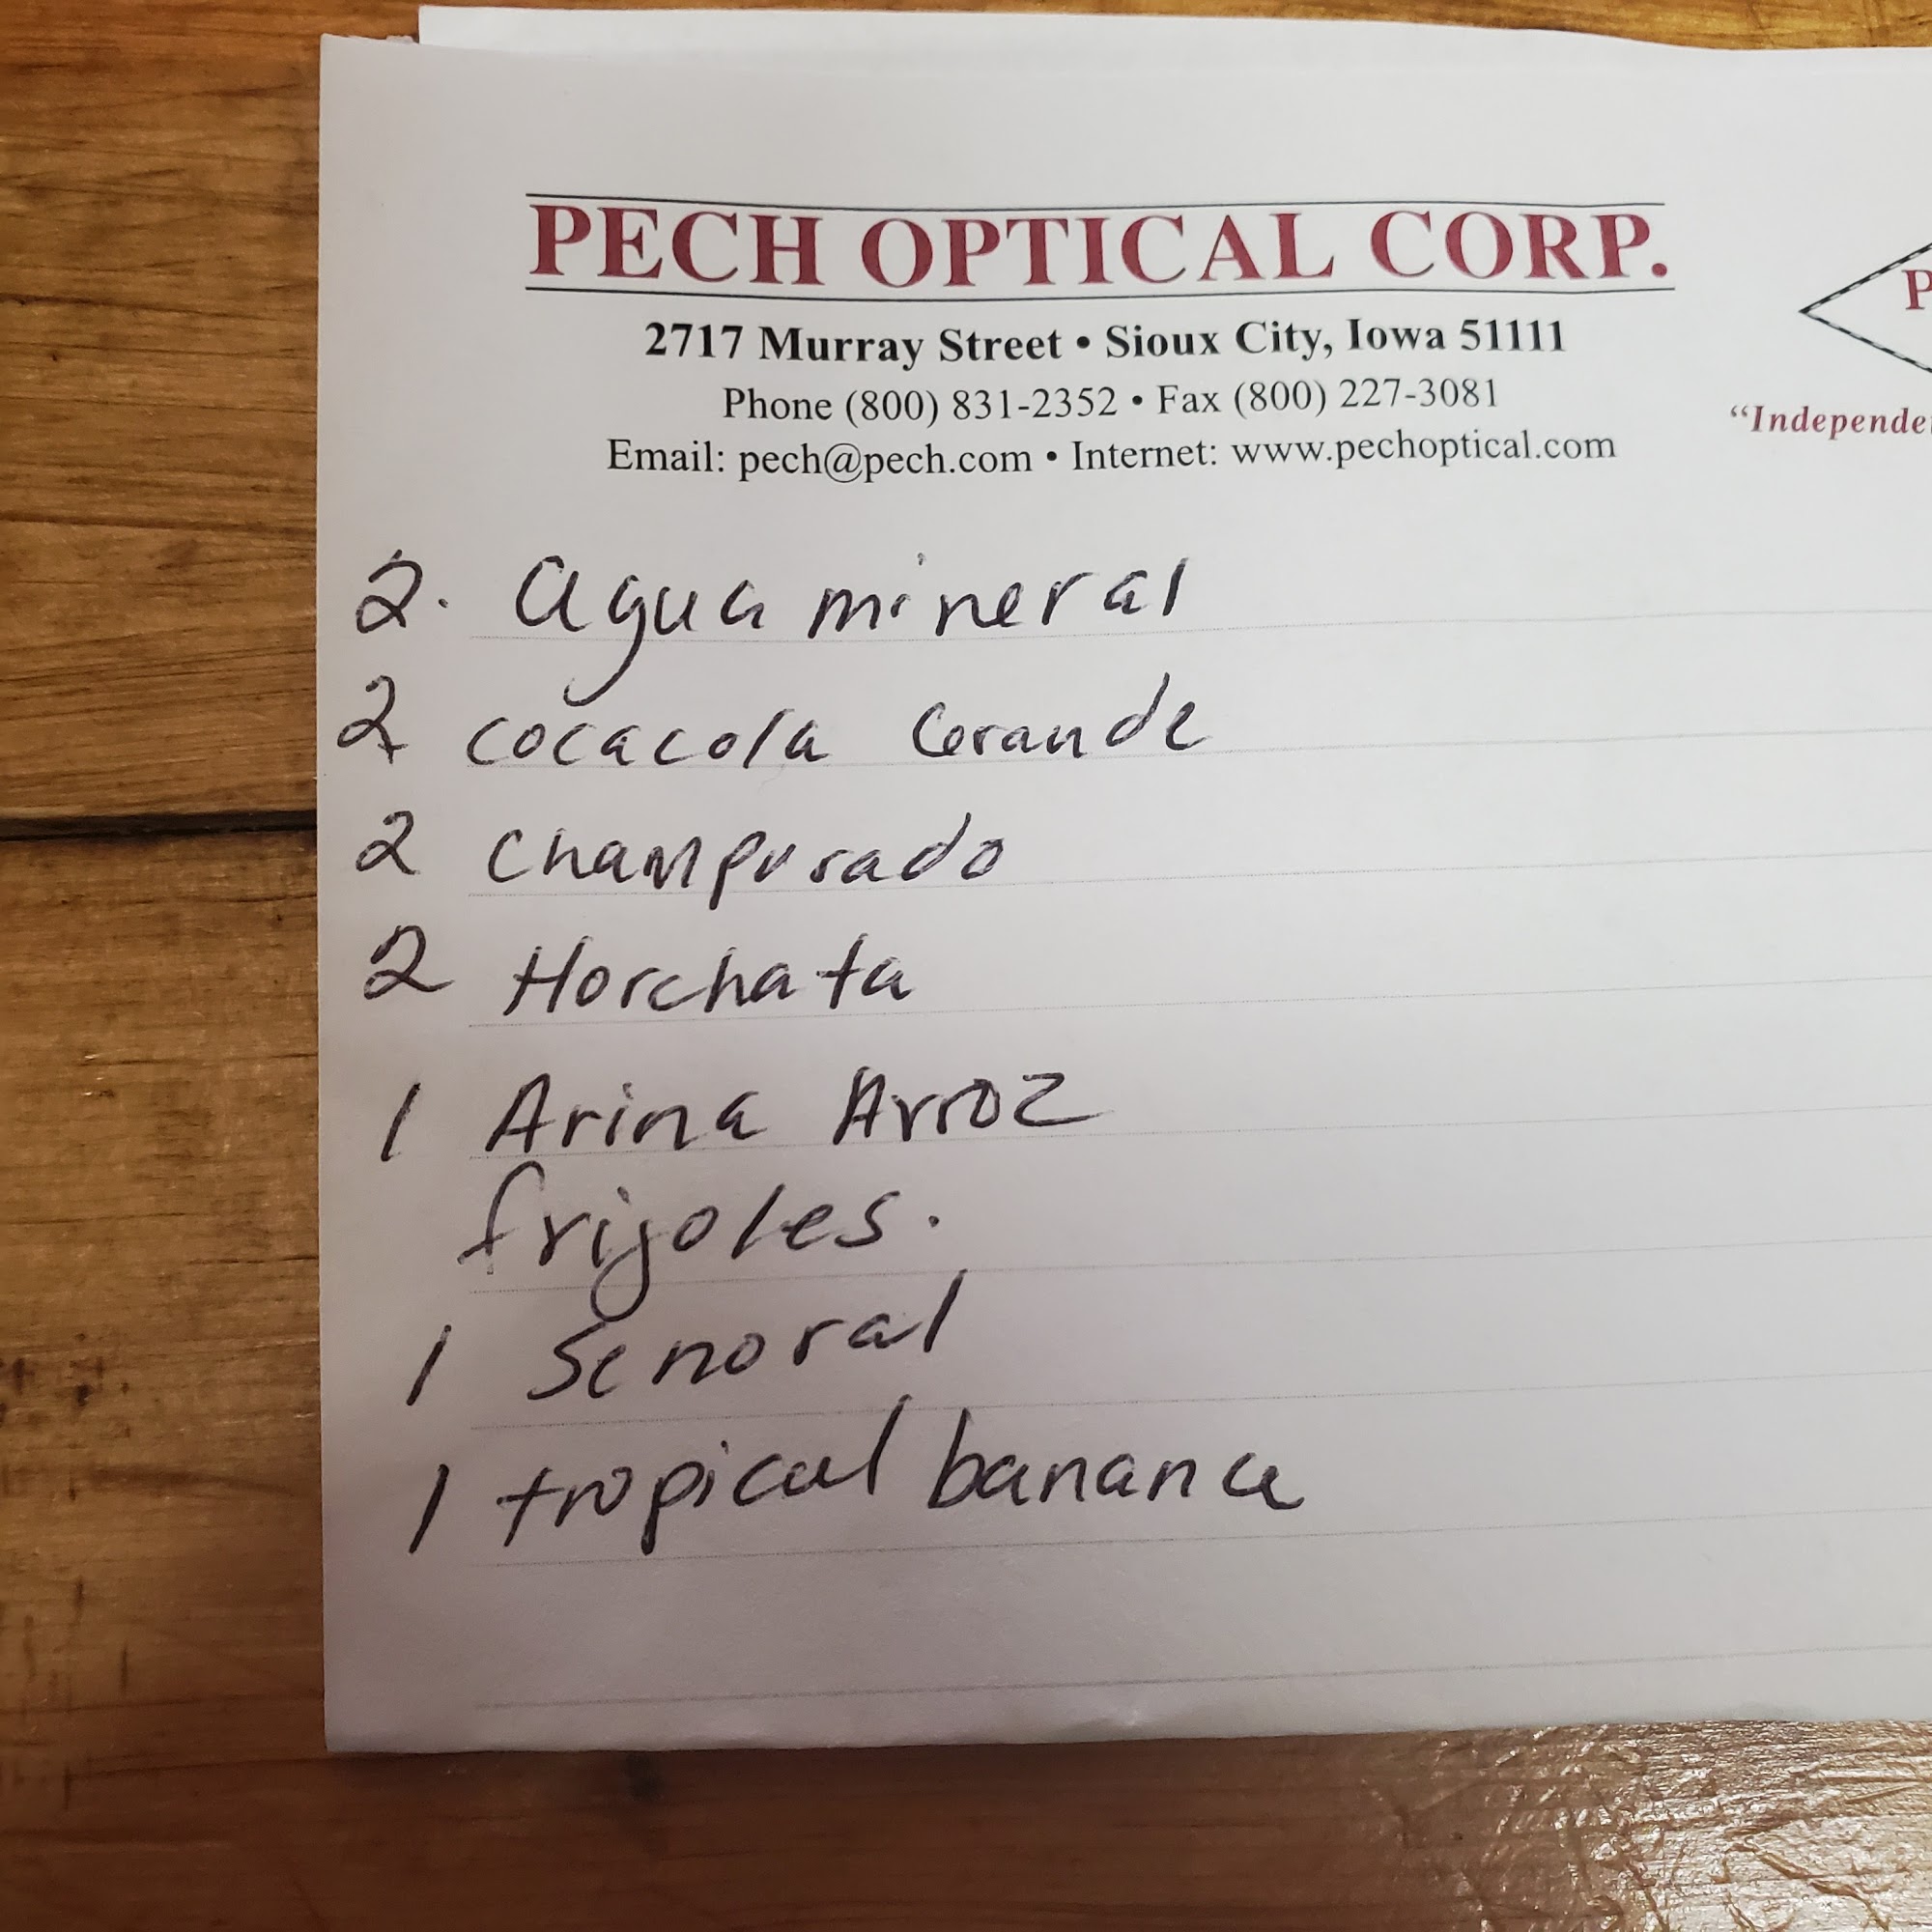 PECH OPTICAL CORP.
2717 Murray Street • Sioux City, Iowa 51111
Phone (800) 831-2352 • Fax (800) 227-3081
Email: pech@pech.com • Internet: www.pechoptical.com
P
"Independe
2. agua mineral
2 cocacola Grande
2 Champurado
2 Horchata
1 Arina Arroz
frijoles.
1 Senoral
1 tropical banana